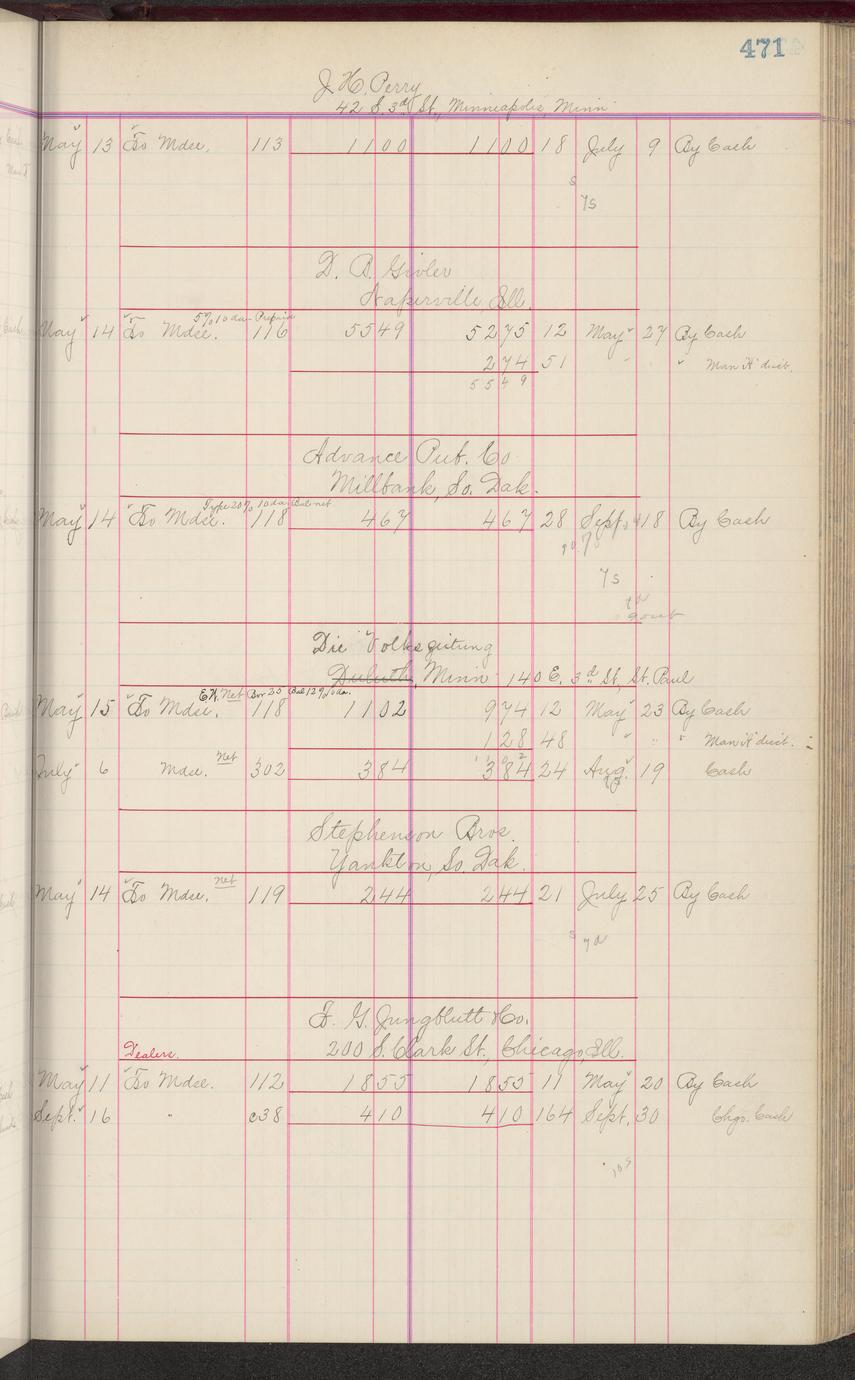 471
J. H. Perry
42 S. 3d St., Minneapolis, Minn
May 13 To Mdse. 113 11 00 11 00 18 July 9 By Cash
s
7s
D. B. Givler
Naperville, Ill.
5% 10 da - Prepaid
May 14 To Mdse. 116 55 49 52 75 12 May 27 By Cash
2 74 51 " Man'f'd disct.
55 49
Advance Pub. Co
Millbank, So. Dak.
Type 20% 10 da Bal net
May 14 To Mdse. 118 4 67 4 67 28 Sept. 18 By Cash
7s
7s
Die Volkszeitung
Duluth, Minn 140 E. 3d St., St. Paul
May 15 To Mdse. 118 11 02 9 74 12 May 23 By Cash
1 28 48 " " " Man'f'd disct.
11 02
July 6 Mdse. Net 302 3 84 3 84 24 Aug. 19 Cash
Stephenson Bros.
Yankton, So. Dak.
May 14 To Mdse. net 119 2 44 2 44 21 July 25 By Cash
s
F. G. Jungblutt Co.
Dealers. 200 S. Clark St., Chicago, Ill.
May 11 To Mdse. 112 18 55 18 55 11 May 20 By Cash
Sept. 16 " c38 4 10 4 10 164 Sept. 30 Chgo. Cash
10s